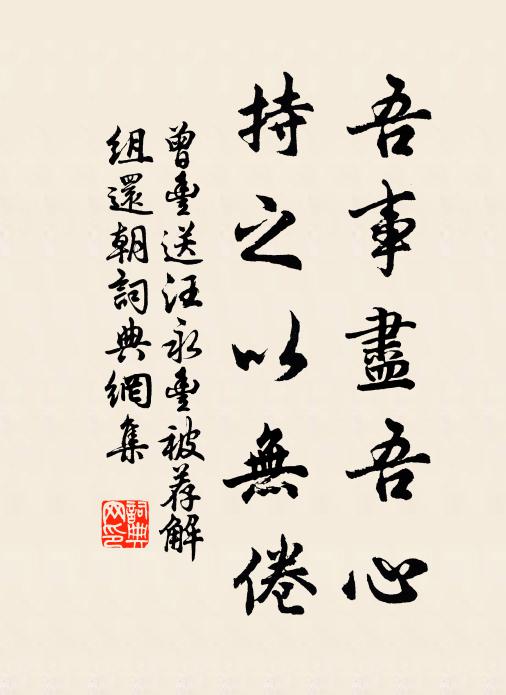 吾事盡吾心
持之以無倦
曾豊送汪永豊被荐解
組還朝詞典網集
詞典
网印